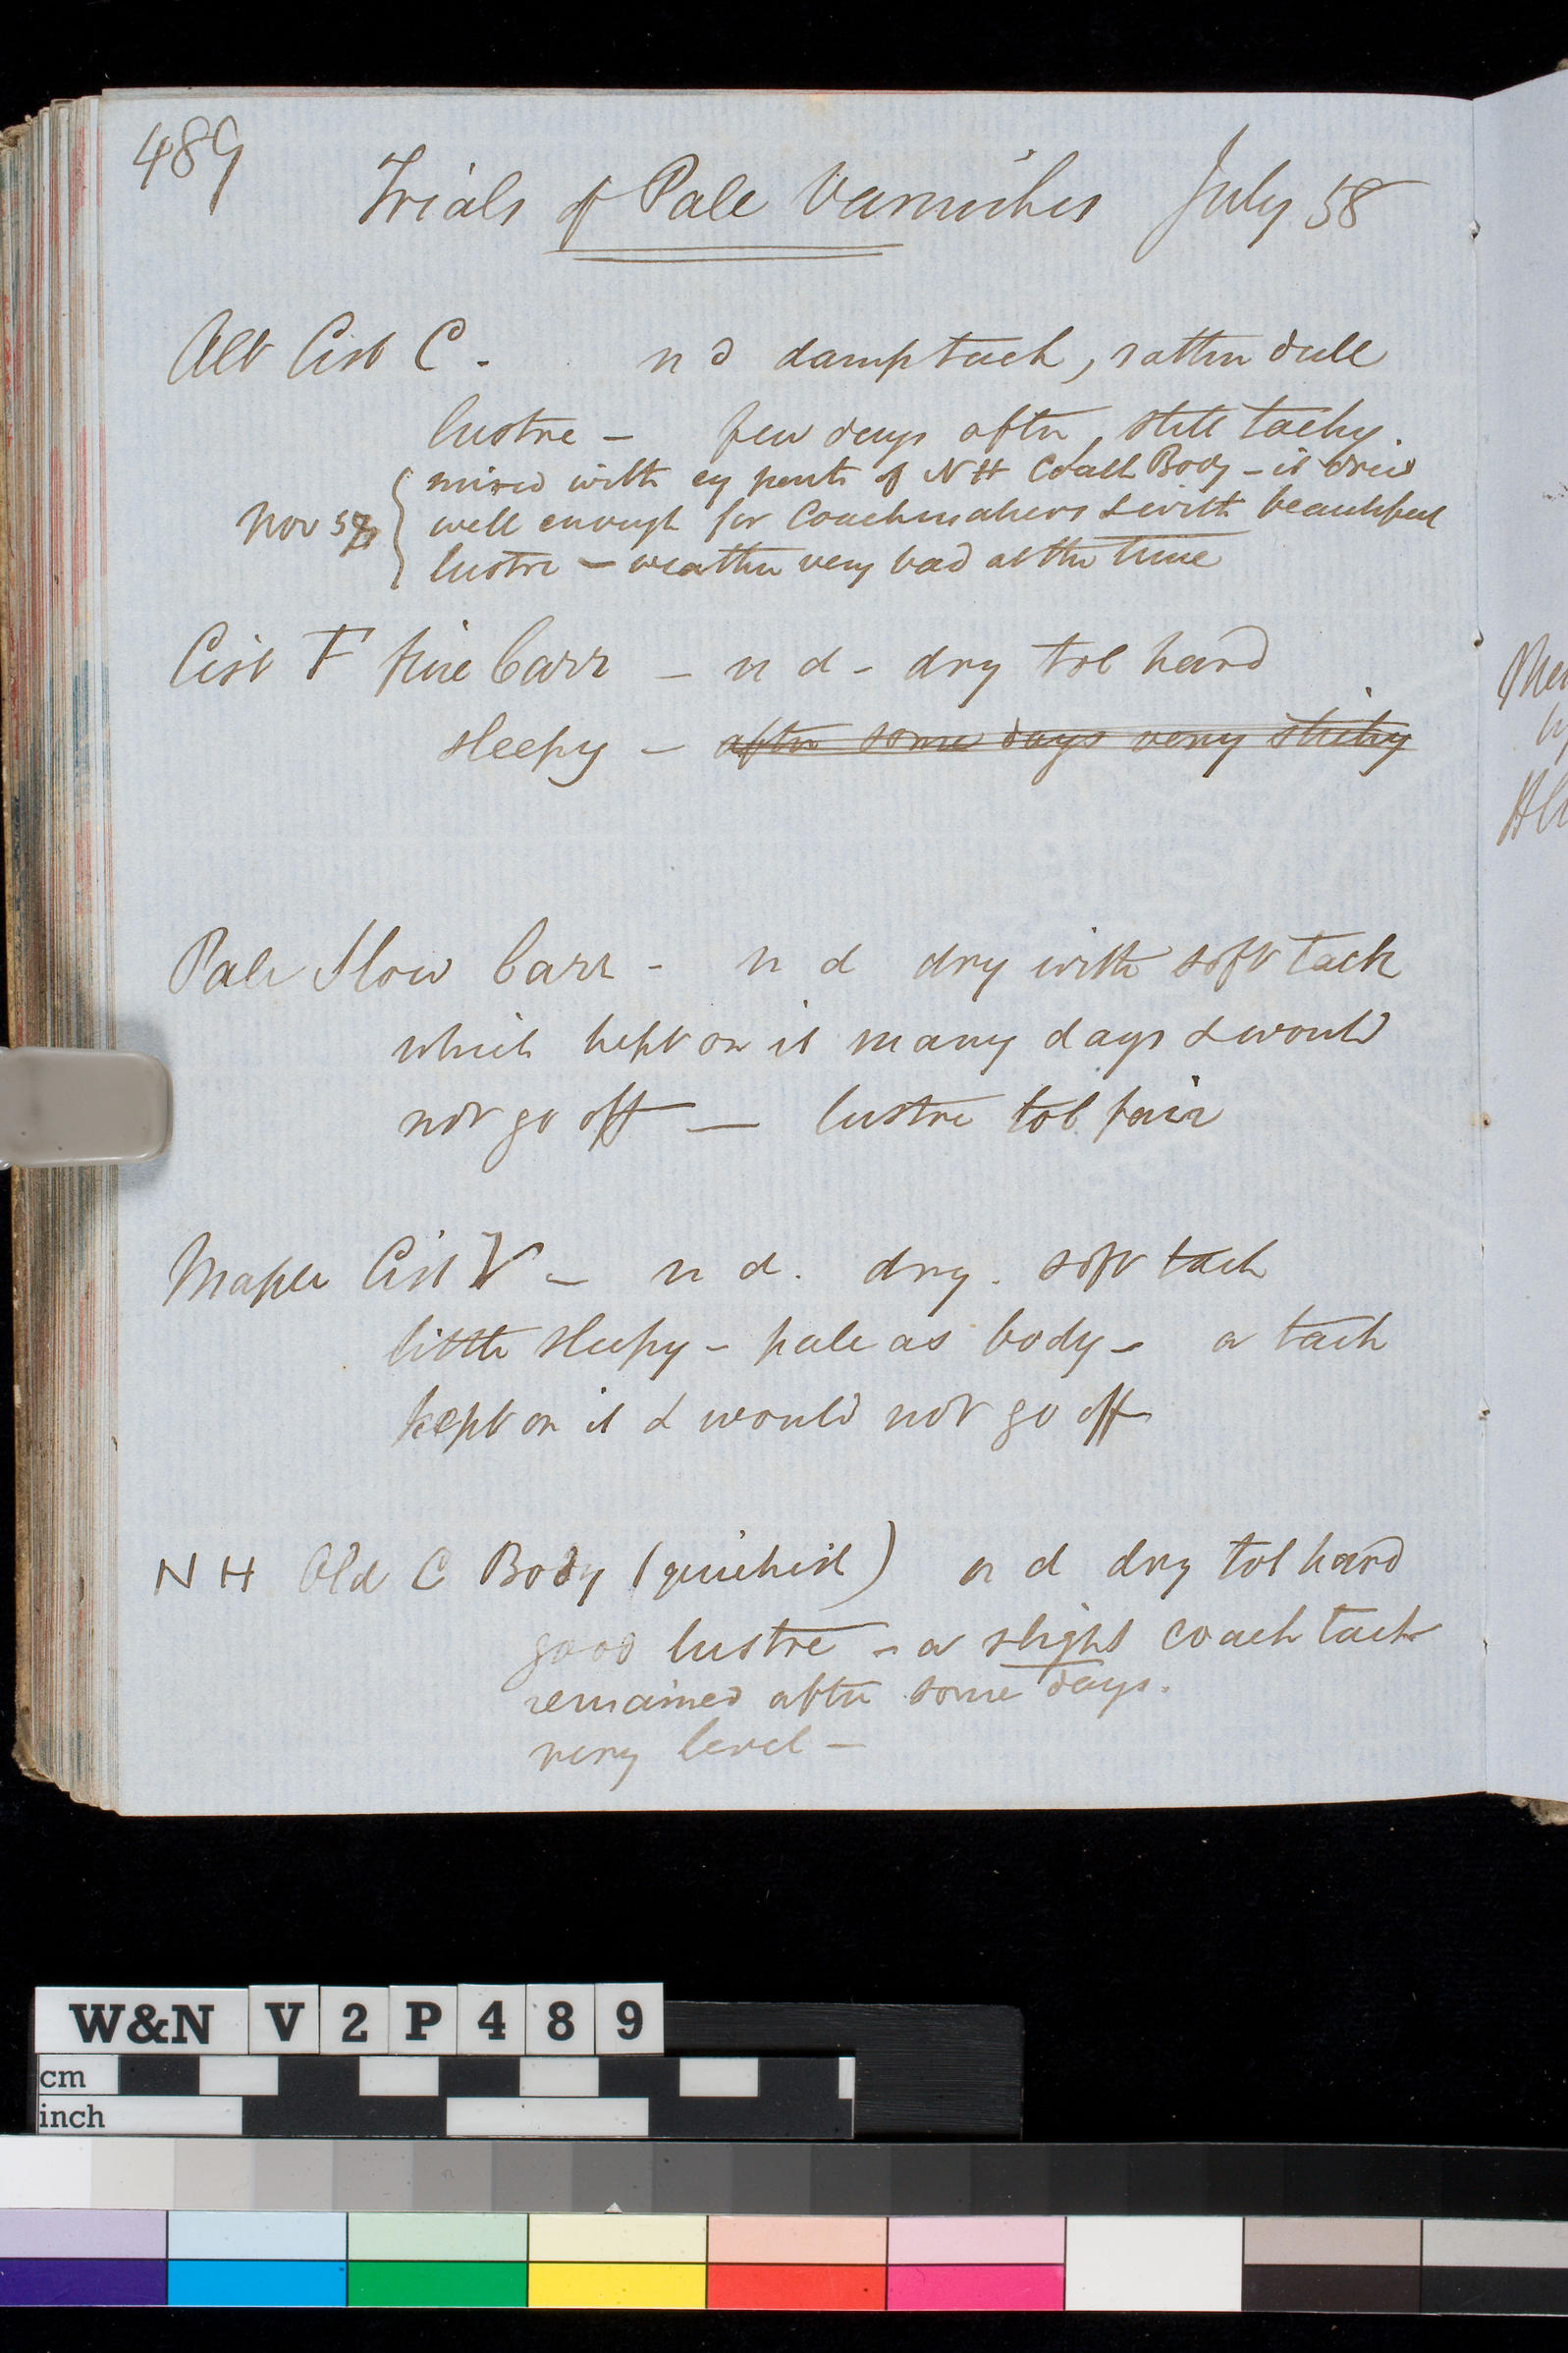 489
Trials of Pale Varnishes July 58
Alb Cist C. n d damp tack, rather dull
lustre – few days after, still tacky.
mixed with eq parts of NH Body – it dries
Nov 57 well enough for Coachmakers & with beautiful
lustre – weather very bad at the time
Cist F fine Carr – n d – dry tol hard
sleepy – after some days very sticky
Pale Slow Carr – n d dry with soft tack
which kept on it many days & would
not go off – lustre tol fair
Maple Cist V – n d. dry. soft tack
little sleepy – pale as body – a tack
kept on it & would not go off
N H Old C Body (quickest) n d dry tol hard
good lustre – a slight coach tack
remained after some days.
very level –
W&N V 2 P 4 8 9
cm
inch